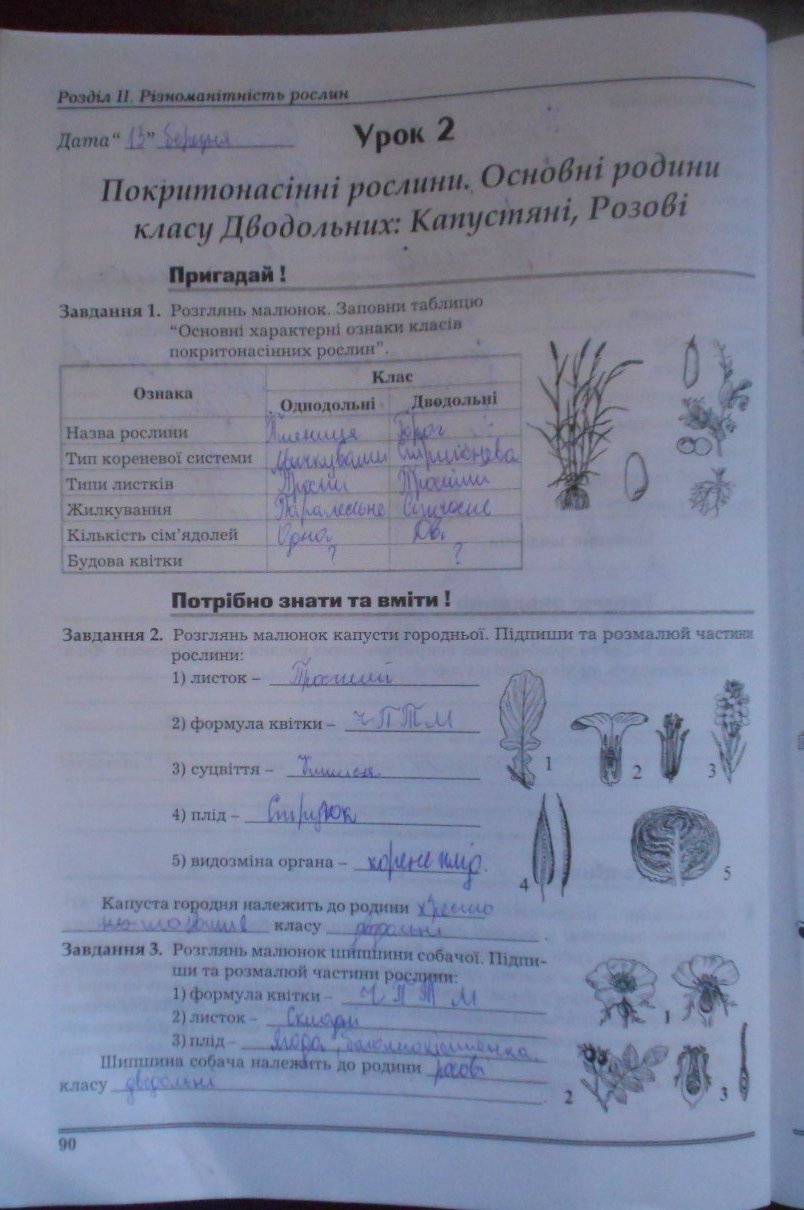 Розділ II. Різноманітність рослин
Дата “ 13 ” березня Урок 2
Покритонасінні рослини. Основні родини
класу Дводольних: Капустяні, Розові
Пригадай !
Завдання 1. Розглянь малюнок. Заповни таблицю
“Основні характерні ознаки класів
покритонасінних рослин”.
Ознака Клас
Однодольні Дводольні
Назва рослини Пшениця Горог
Тип кореневої системи Стрижнева
Типи листків Прості Простий
Жилкування Паралельне Сітчасте
Кількість сім’ядолей Одна Дві
Будова квітки ? ?
Потрібно знати та вміти !
Завдання 2. Розглянь малюнок капусти городньої. Підпиши та розмалюй частини
рослини:
1) листок – Простий
2) формула квітки – Ч П Т М
3) суцвіття –
4) плід – Стручок
5) видозміна органа – коренеплід.
1
2
3
4
5
Капуста городня належить до родини хресто
класу дводольні .
Завдання 3. Розглянь малюнок шипшини собачої. Підпи-
ши та розмалюй частини рослини:
1) формула квітки – Ч П Т М
2) листок – Складн
3) плід – Ягода,
Шипшина собача належить до родини розові
класу дводольні .
1
2
3
90